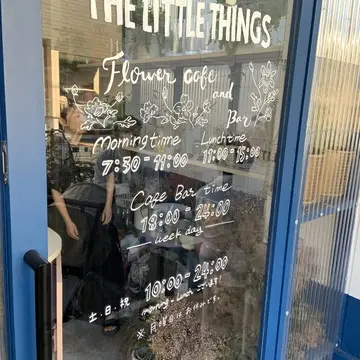 THE LITTLE THINGS
Flower cafe
and
Bar
Morning time
7:30-11:00
Lunch time
11:00-15:00
Cafe Bar time
18:00-24:00
week day
土・日・祝
10:00-24:00
morning・Lunch ございます!
※月曜日はお休みです。